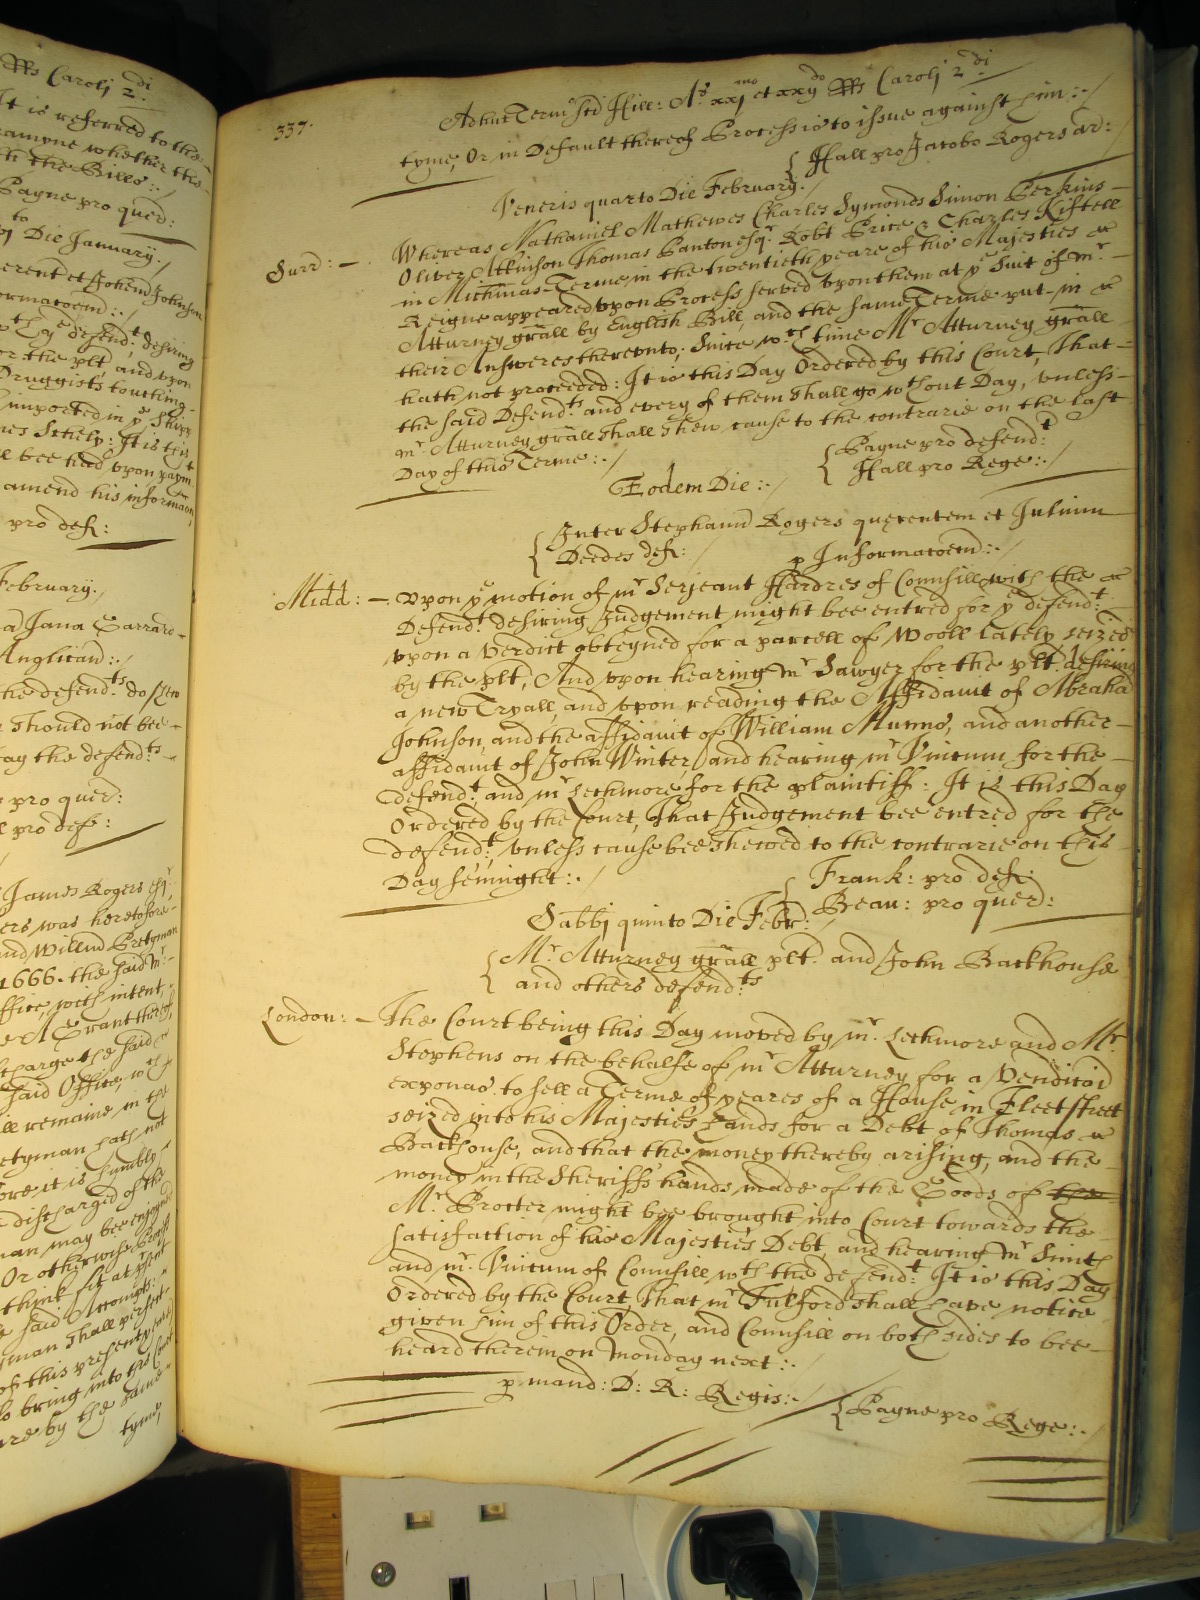 RRs Caroli 2di
It is referred to the
examyne whether the
the Bills:
Payne pro quer:
Die January.
erent et Johem Johnson
ormatoem:
ye defendt desiring
for the plt, and upon
Druggists touching
imported in ye Shipp
Itt is this
bee had upon paym
amend his informaon
pro deft:
February.
Jana Garrard
Anglican:
the defendts do shew
should not bee
ay the defendts
pro quer:
pro def:
James Rogers esqr
ers was heretofore
and Willm Pretyman
1666. the said Mr
Office, with intent,
A Grant thereof
charge the said
said Office, wch
ill remaine in the
etyman hath not
ore it is humbly
discharged of the
man may bee enjoyned
Or otherwise
thinke fit at
said Attempts:
yman shall
of this present
to bring into this Court
are by the same
tyme,
337.
Adhuc Termi Sti Hill: Ao xxjmo et xxijdo RRs Caroli 2di
tyme, Or in Default thereof Process is to issue against him:
Hall pro Jacobo Rogers ar:
Veneris quarto Die February.
Surr: Whereas Nathaniel Mathewes Charles Symonds Simon Perkins
Oliver Atkinson Thomas Panton esqr. Robt Price & Charles Kistell
in Michmas Terme in the twentieth yeare of his Majesties
Reigne appeared upon Process served upon them at ye Suit of Mr
Atturney grall by English Bill, and the same Terme put in
their Answeres thereunto; Since wch time Mr Atturney grall
hath not proceeded: It is this Day Ordered by this Court, That
the said Defendts and every of them shall go wthout Day, unless
mr Atturney grall shall shew cause to the contrarie on the last
Day of this Terme:
Payne pro defendt
Hall pro Rege:
Eodem Die:
Inter Stephanu Rogers querentem et Julium
Deedes deft:
p Informatoem:
Midd: Upon ye motion of mr Serjeant Hardres of Counsill with the
Defendt desiring Judgement might bee entred for ye defendt
upon a Verdict obteyned for a parcell of Wooll lately seized
by the plt, And upon hearing mr Sawyer for the plt desiring
a new Tryall, and upon reading the Affidavit of Abraha
Johnson, and the affidavit of William Munns, and another
affidavit of John Winter, and hearing mr Vincum for the
defendt, and mr Lechmore for the plaintiff: It is this Day
Ordered by the Court, That Judgement bee entred for the
defendt, unless cause bee shewed to the contrarie on this
Day sevinight:
Frank: pro deft:
Beau: pro quer:
Sabbi quinto Die Febr:
Mr Atturney grall plt. and John Backhouse
and others defendts
London: The Court being this Day moved by mr. Lechmore and Mr
Stephens on the behalfe of mr Atturney for a Venditoi
exponas to sell a Terme of yeares of a House in Fleetstreet
seized into his Majesties hands for a Debt of Thomas
Backhouse, and that the money thereby arising, and the
money in the Sheriffs hands made of the Goods of the
Mr. Procter might bee brought into Court towards the
satisfaction of his Majesties Debt, and hearing Mr Smith
and mr. Vincum of Counsill wth the defendt. It is this Day
Ordered by the Court, That mr Fulford shall have notice
given him of this Order, and Counsill on both sides to bee
heard therein on Monday next:
p mand: D: R: Regis:
Payne pro Rege: